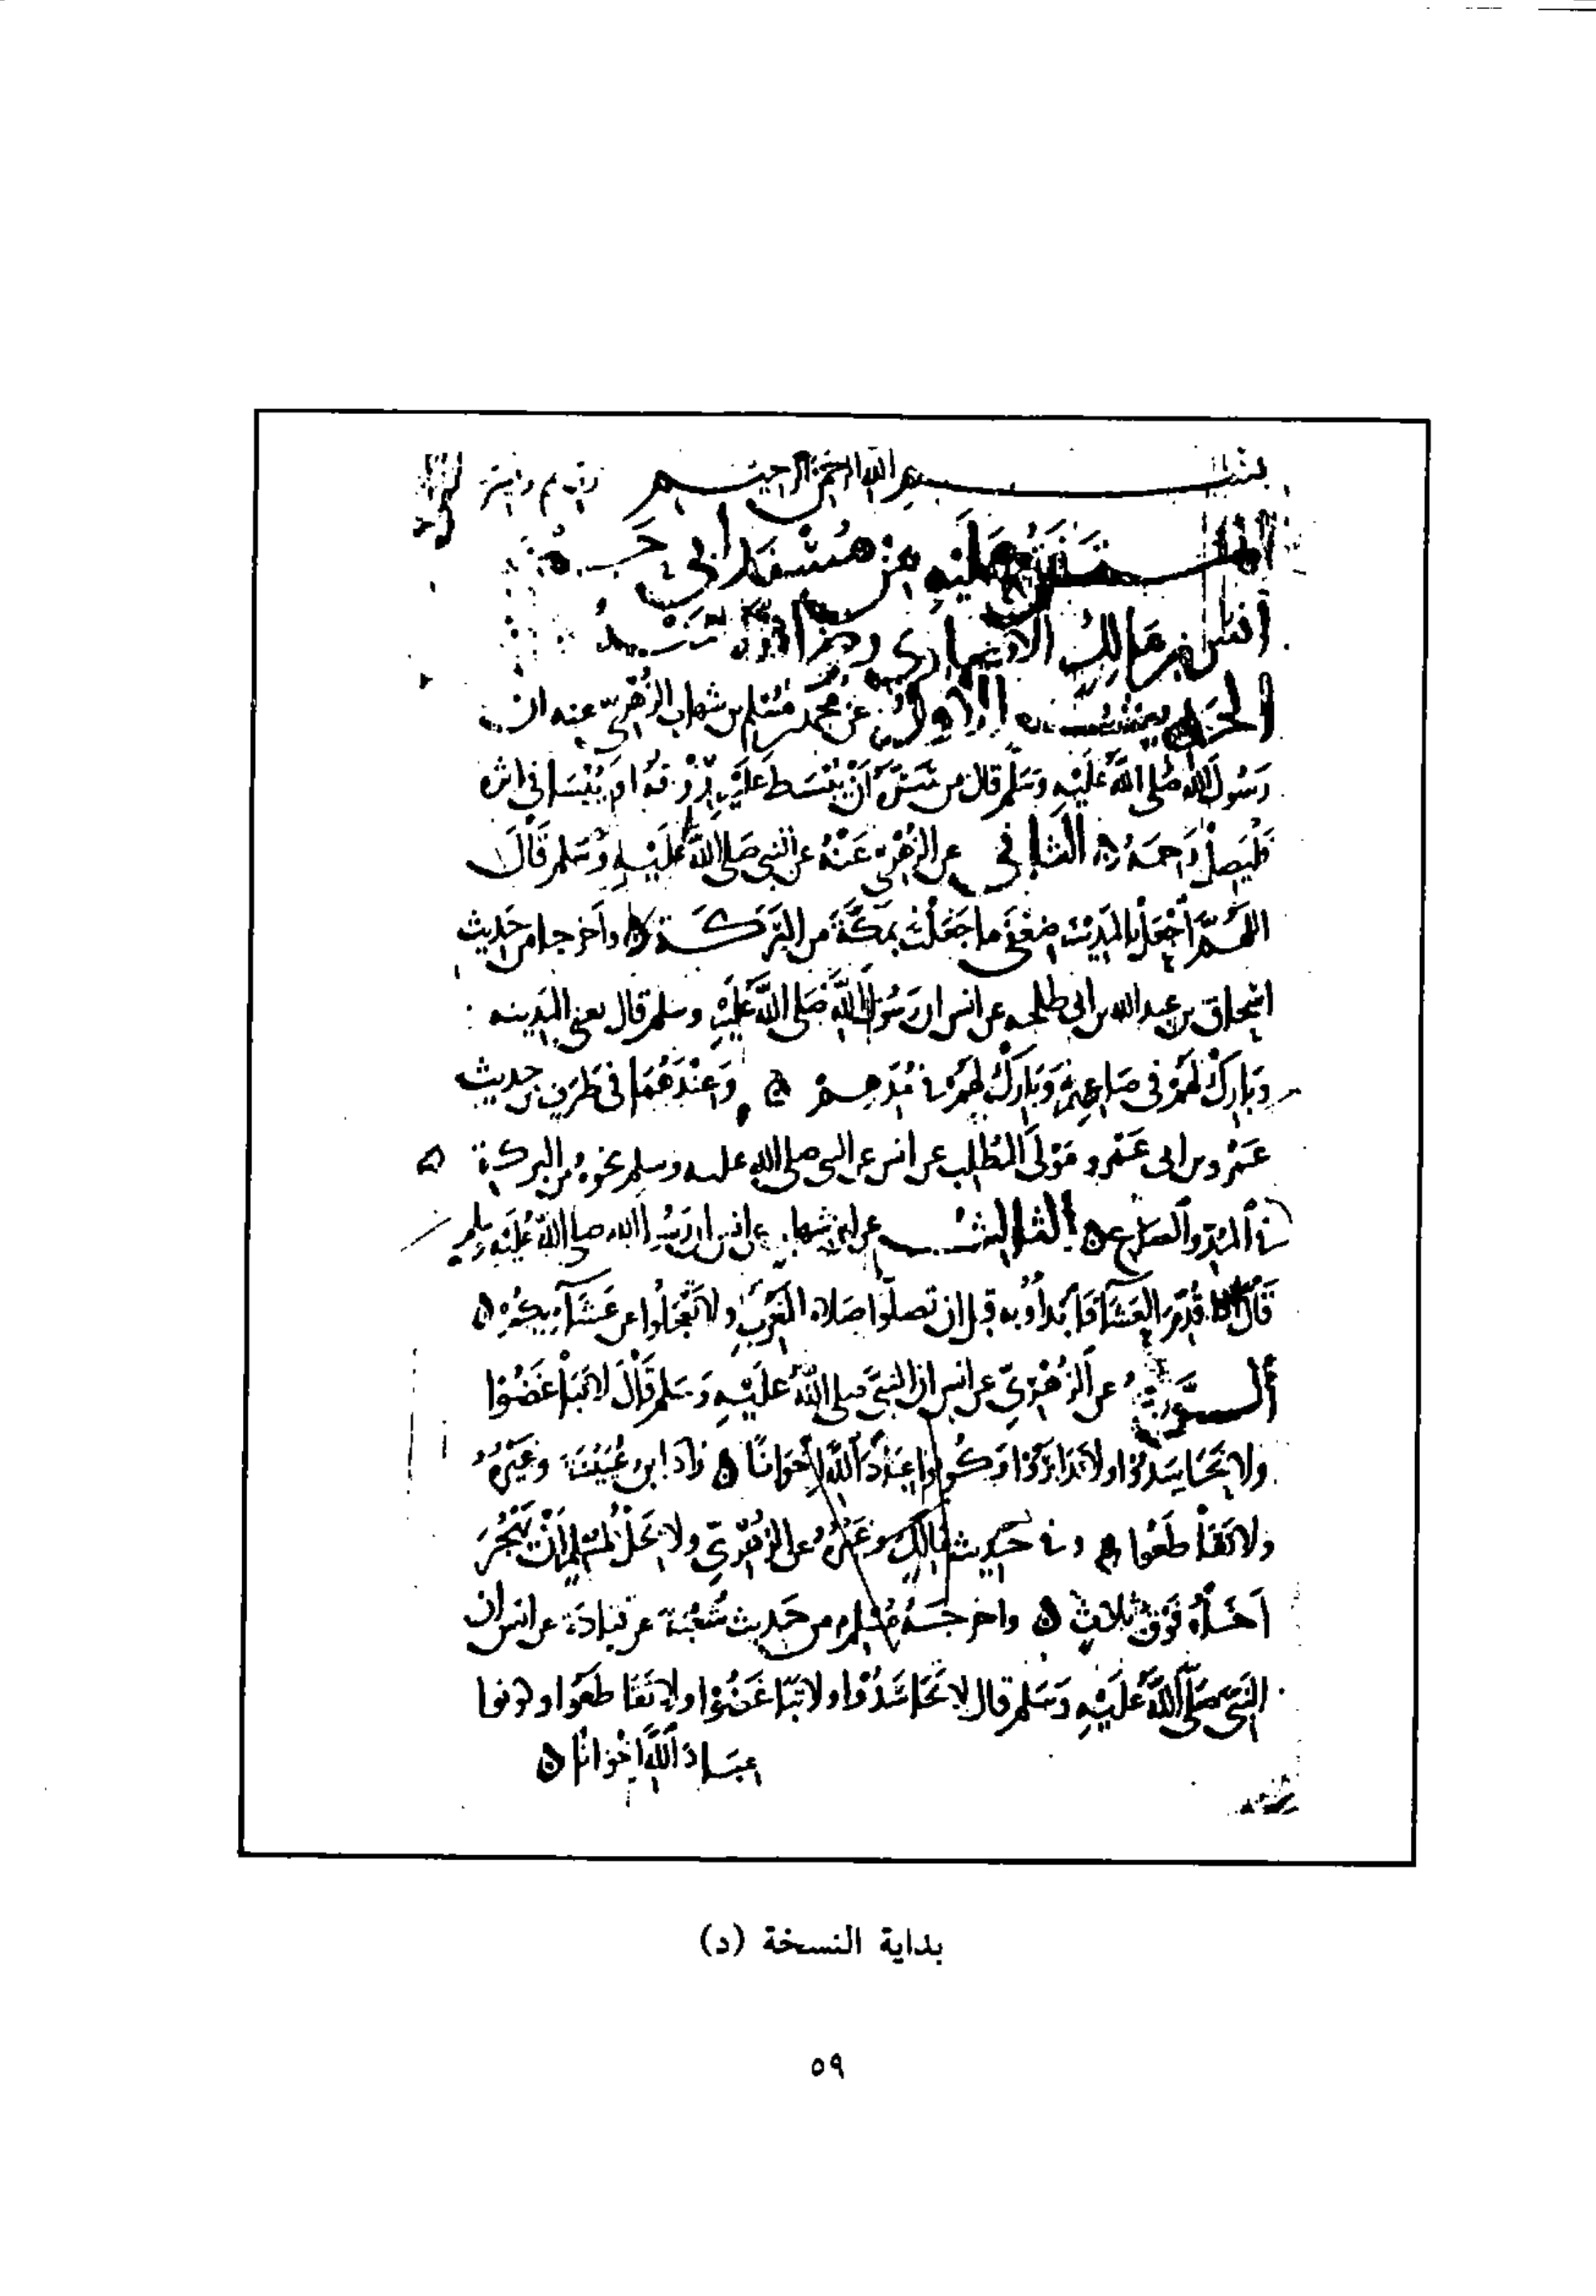 بسم الله الرحمن الرحيم رب
المتفق عليه من مسند ابي حمزه
أنس بن مالك الانصاري
الحديث الأول عن محمد بن مسلم بن شهاب الزهري عنه ان
رسول الله صلى الله عليه وسلم قال من سره أن يبسط عليه رزقه او ينسا في اثره
فليصل رحمه الثاني عن الزهري عنه عن النبي صلى الله عليه وسلم قال
اللهم اجعل بالمدينه ضعفي ما جعلت بمكة من البركة واخرجا من حديث
اسحاق بن عبد الله بن ابي طلحه عن انس ان رسول الله صلى الله عليه وسلم قال يعني المدينه
وبارك لهم في صاعهم وبارك لهم في مدهم وعندهما في طرف من حديث
عمرو بن ابي عمرو مولى المطلب عن انس عن النبي صلى الله عليه وسلم نحوه من البركة
في المد والصاع الثالث عن ابن شهاب عن انس ان رسول الله صلى الله عليه وسلم
قال اذا قدم العشا فابدأوا به قبل ان تصلوا صلاه المغرب ولا تعجلوا عن عشآيكم
عن الزهري عن انس ان النبي صلى الله عليه وسلم قال لا تباغضوا
ولا تحاسدوا ولا تدابروا وكونوا عباد الله إخوانا زاد ابن عيينة وغيره
ولا تقاطعوا وفي حديث مالك وغيره عن الزهري ولا يحل لمسلم أن يهجر
أخاه فوق ثلاث واخرجه مسلم من حديث شعبة عن قتادة عن انس ان
النبي صلى الله عليه وسلم قال لا تحاسدوا ولا تباغضوا ولا تقاطعوا وكونوا
عباد الله إخوانا
بداية النسخة (د)
٥٩